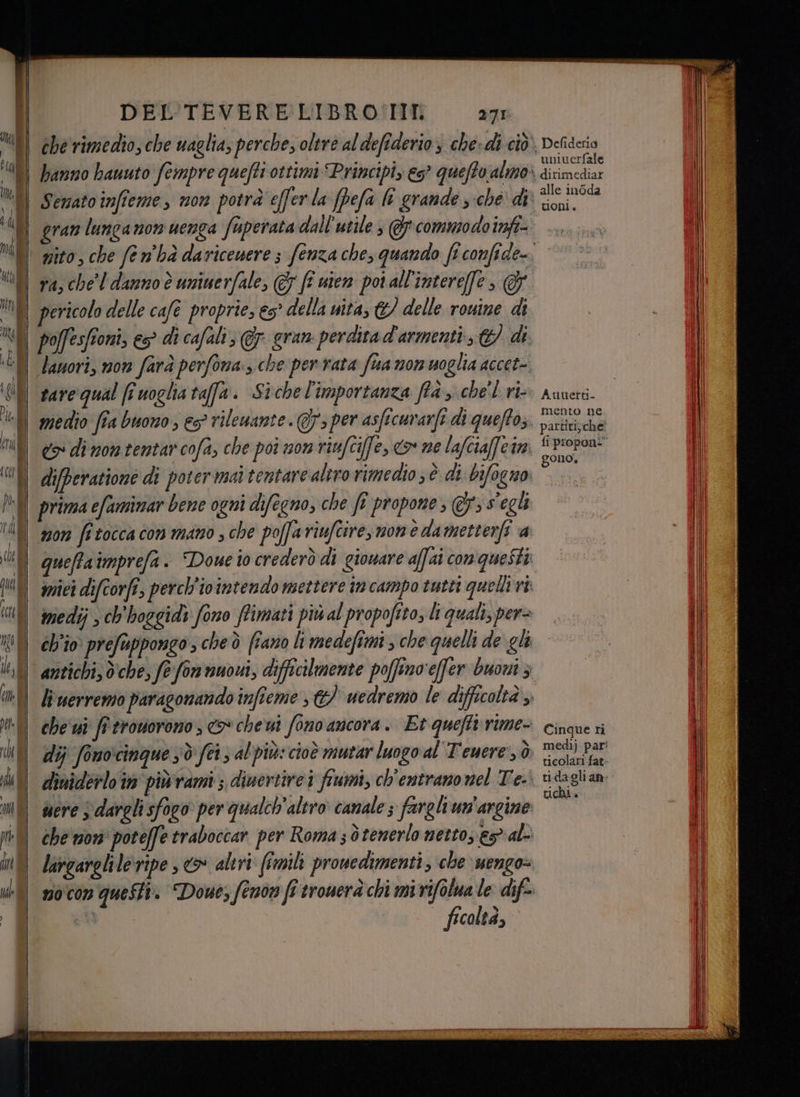 DEL TEVERE LIBRO III. 271
che rimedio, che uaglia, perche, oltre al desiderio, che di ciò
hanno hauuto sempre questi ottimi Principi, & questo almo
Senato insieme, non potrà esser la spesa sì grande, che di
gran lunga non uenga superata dall'utile, & commodo infi-
nito, che se n'hà da riceuere; senza che, quando si conside-
ra, che'l danno è uniuersale, & si uien poi all'interesse, &
pericolo delle case proprie, & della uita, & delle rouine di
possessioni, & di casali, & gran perdita d'armenti, & di
lauori, non sarà persona, che per rata sua non uoglia accet-
tare qual si uoglia tassa. Si che l'importanza stà, che'l ri-
medio sia buono, & rileuante. &, per assicurarsi di questo,
& di non tentar cosa, che poi non riuscisse, & ne lasciasse in
disperatione di poter mai tentare altro rimedio, è di bisogno
prima esaminar bene ogni disegno, che si propone, &, s'egli
non si tocca con mano, che possa riuscire, non è da mettersi a
questa impresa. Doue io crederò di giouare assai con questi
miei discorsi, perch'io intendo mettere in campo tutti quelli ri
medij, ch'hoggidì sono stimati più al proposito, li quali, per=
ch'io presuppongo, che ò siano li medesimi, che quelli de gli
antichi, ò che, se son nuoui, difficilmente possino esser buoni;
li uerremo paragonando insieme, & uedremo le difficoltà,
che ui si trouorono, & che ui sono ancora. Et questi rime-
dij sono cinque, ò sei, al più: cioè mutar luogo al Teuere, ò
diuiderlo in più rami; diuertire i fiumi, ch'entrano nel Te-
uere; dargli sfogo per qualch'altro canale; fargli un'argine
che non potesse traboccar per Roma; ò tenerlo netto, & al-
largargli le ripe, & altri simili prouedimenti, che uengo=
no con questi. Doue, se non si trouerà chi mi risolua le dif-
ficoltà,
Desiderio
uniuersale
di rimediar
alle inõda
tioni.
Auuerti-
mento ne
partiti, che
si propon-
gono.
Cinque ri
medij par
ticolari fat
ti da gli an
tichi.